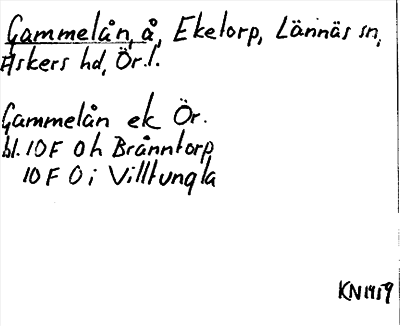 Gammelån, å, Ekelorp, Lännäs sn,
Askers hd, Ör.l.
Gammelån ek Ör.
bl. 10F 0h Brånntorp
10F 0i Villtungla